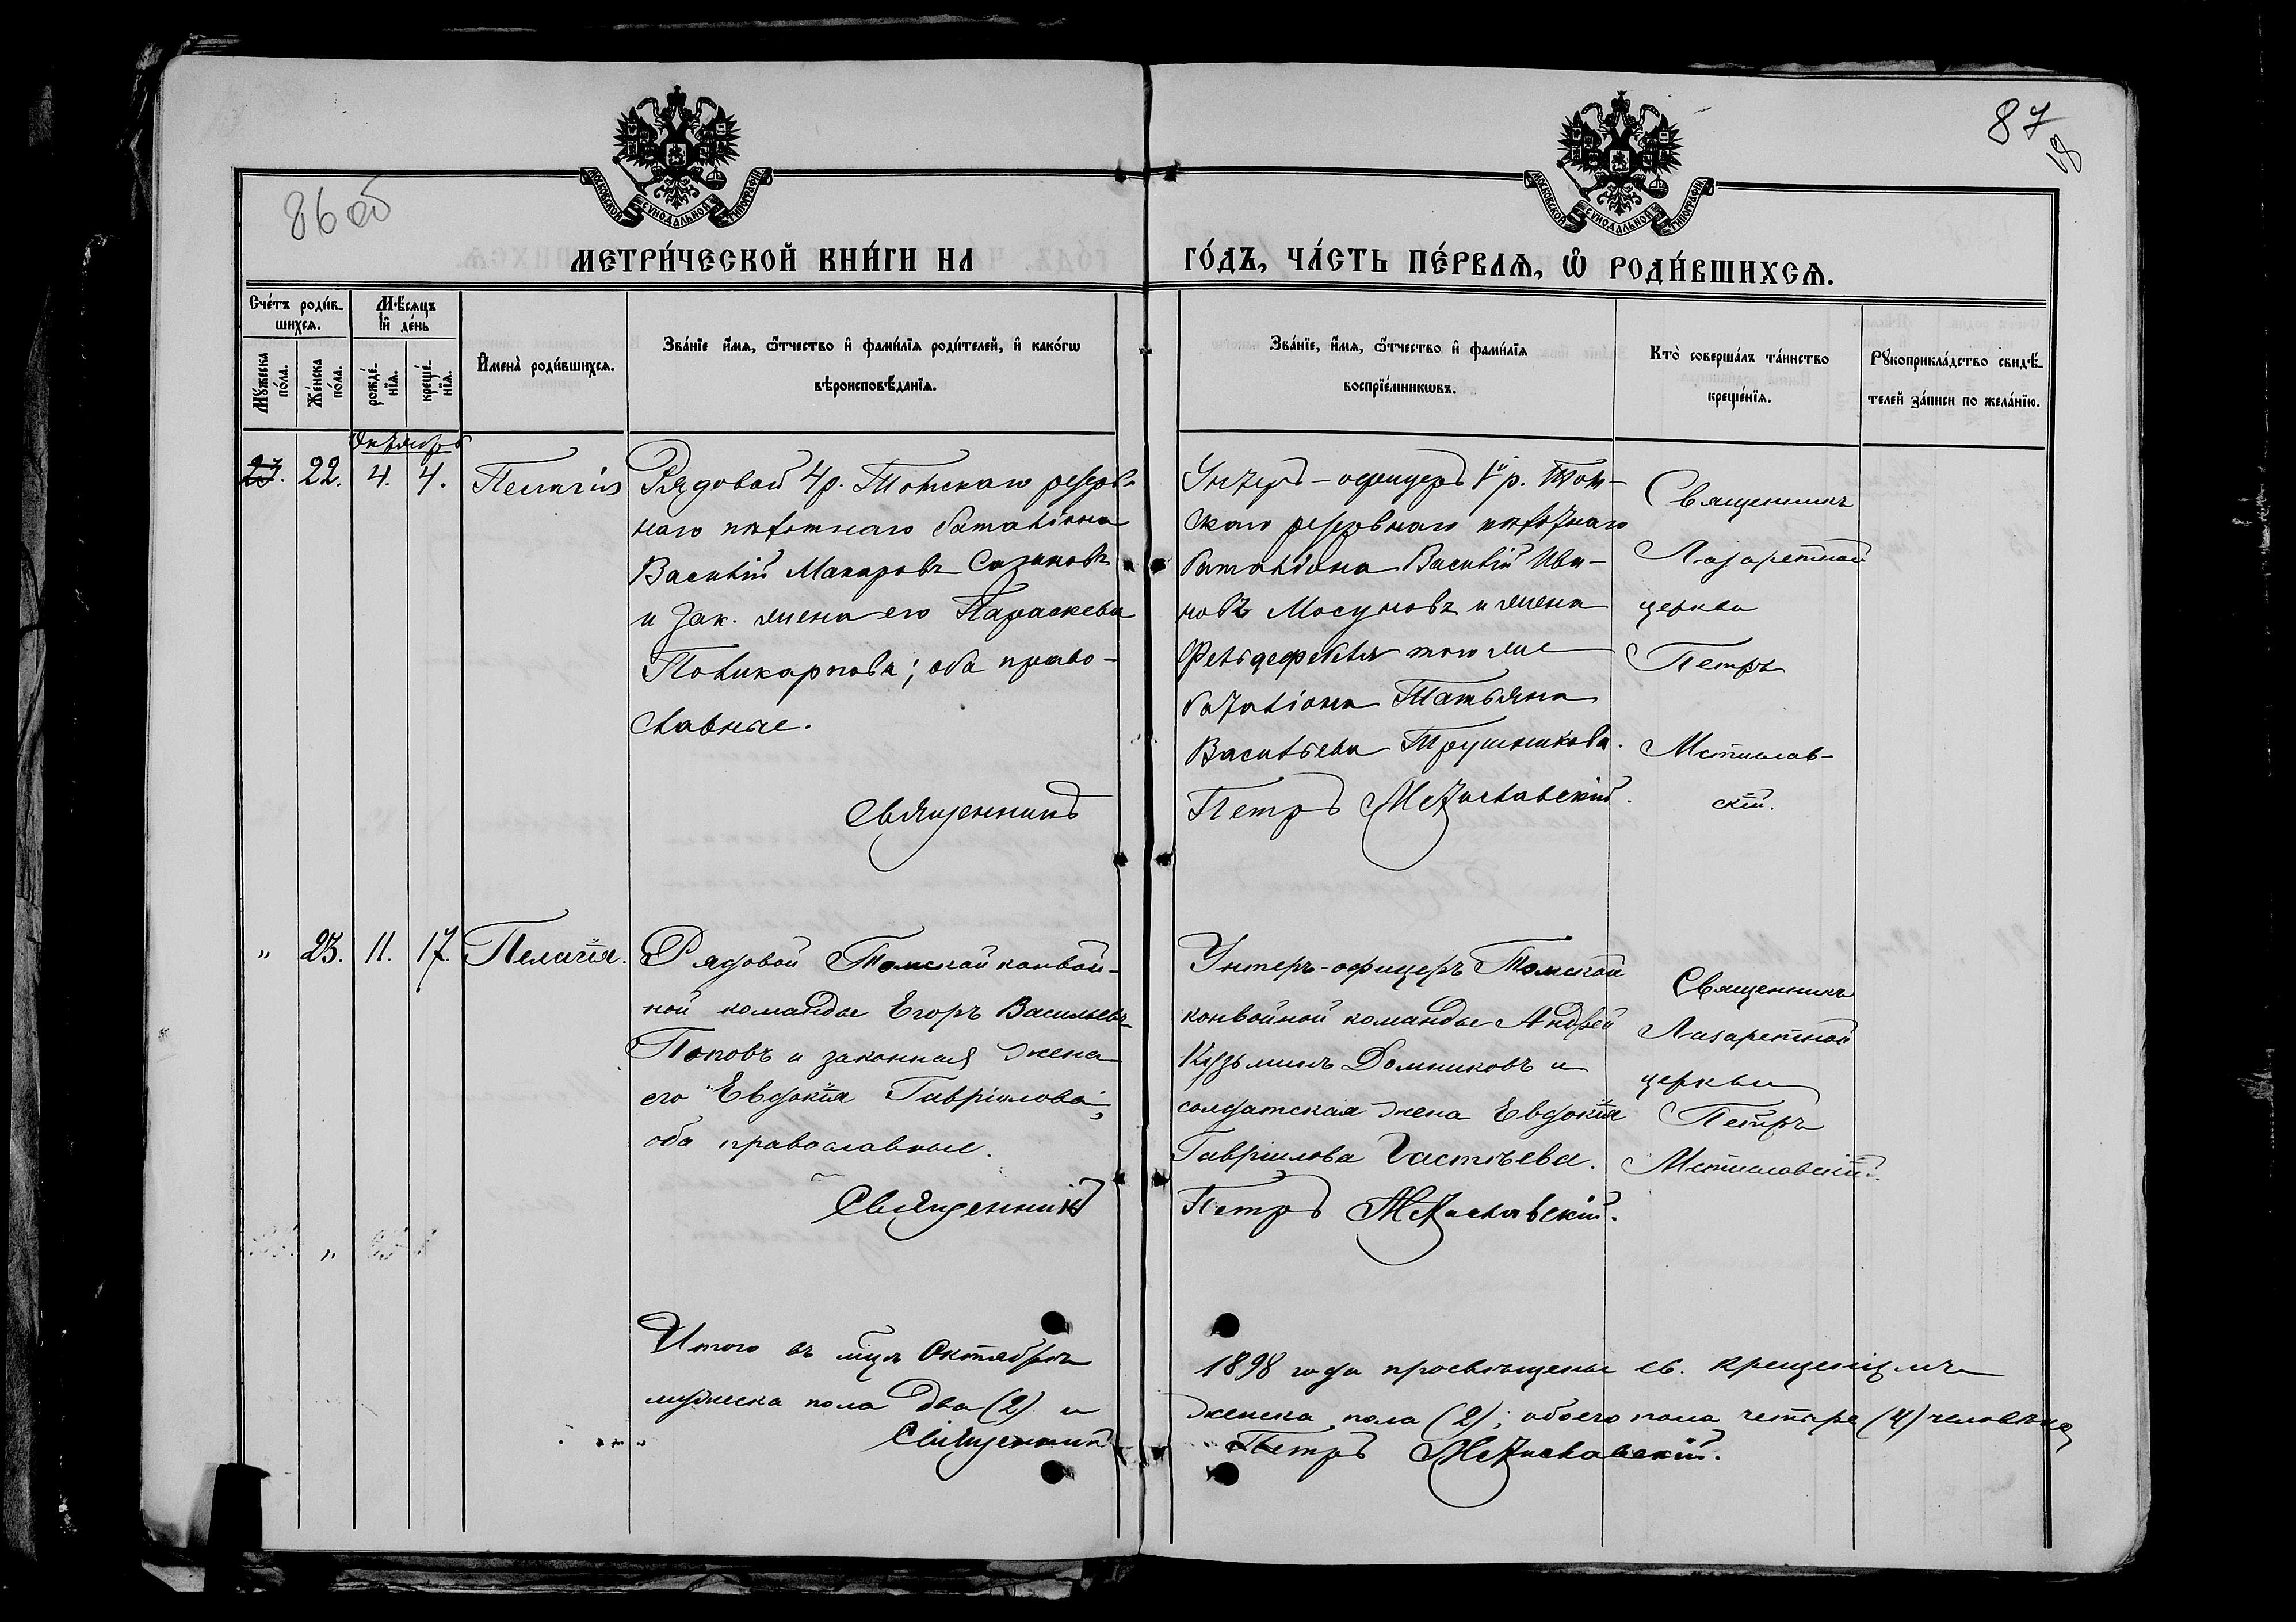 86 об
87
18
МОСКОВСКОЙ СѴНОДАЛЬНОЙ ТИПОГРАФІИ
МОСКОВСКОЙ СѴНОДАЛЬНОЙ ТИПОГРАФІИ
МЕТРИ́ЧЕСКОЙ КНИ́ГИ НА
ГО́ДЪ, ЧА́СТЬ ПЕ́РВАѦ, Ѡ РОДИ́ВШИХСѦ.
Сче́тъ роди́в-
шихсѧ.
Мꙋ́жеска по́ла.
Же́нска по́ла.
Мѣ́сѧцъ
и҆ де́нь
рожде́-
нїѧ.
креще́-
нїѧ.
И҆мена̀ роди́вшихсѧ.
Зва́нїе и҆́мѧ, ѻ҆́тчество и҆ фами́лїѧ роди́телей, и҆ како́гѡ
вѣроисповѣ́данїѧ.
Зва́нїе, и҆́мѧ, ѻ҆́тчество и҆ фами́лїѧ
воспрїе́мникѡвъ.
Кто̀ соверша́лъ та́инство
креще́нїѧ.
Рꙋкоприкла́дство свидѣ́-
телей за́писи по жела́нїю.
Октябрь
23. 22. 4. 4. Пелагія
Рядовой 4 р. Томскаго резерв-
наго пѣхотнаго баталіона
Василій Макаровъ Сазановъ
и зак. жена его Параскева
Поликарпова; оба право-
славные.
Священникъ
Унтеръ-офицеръ 1й р. Том-
скаго резервнаго пѣхотнаго
баталіона Василій Ива-
новъ Мосуновъ и жена
Фельдфебеля того же
баталіона Татьяна
Васильева Трушникова.
Петръ Мстиславскій.
Священникъ
Лазаретной
церкви
Петръ
Мстислав-
скій.
" 23. 11. 17. Пелагія.
Рядовой Томской конвой-
ной команды Егоръ Васильевъ
Поповъ и законная жена
его Евдокія Гавріилова;
оба православные.
Священникъ
Унтеръ-офицеръ Томской
конвойной команды Андрей
Кузьминъ Домниковъ и
солдатская жена Евдокія
Гавріилова Частьева.
Петръ Мстиславскій.
Священникъ
Лазаретной
церкви
Петръ
Мстиславскій.
"
Итого въ мцѣ Октябрѣ
мужеска пола два (2) и
Священникъ
1898 года просвѣщены св. крещеніемъ
женска пола (2); обоего пола четыре (4) человѣка
Петръ Мстиславскій.